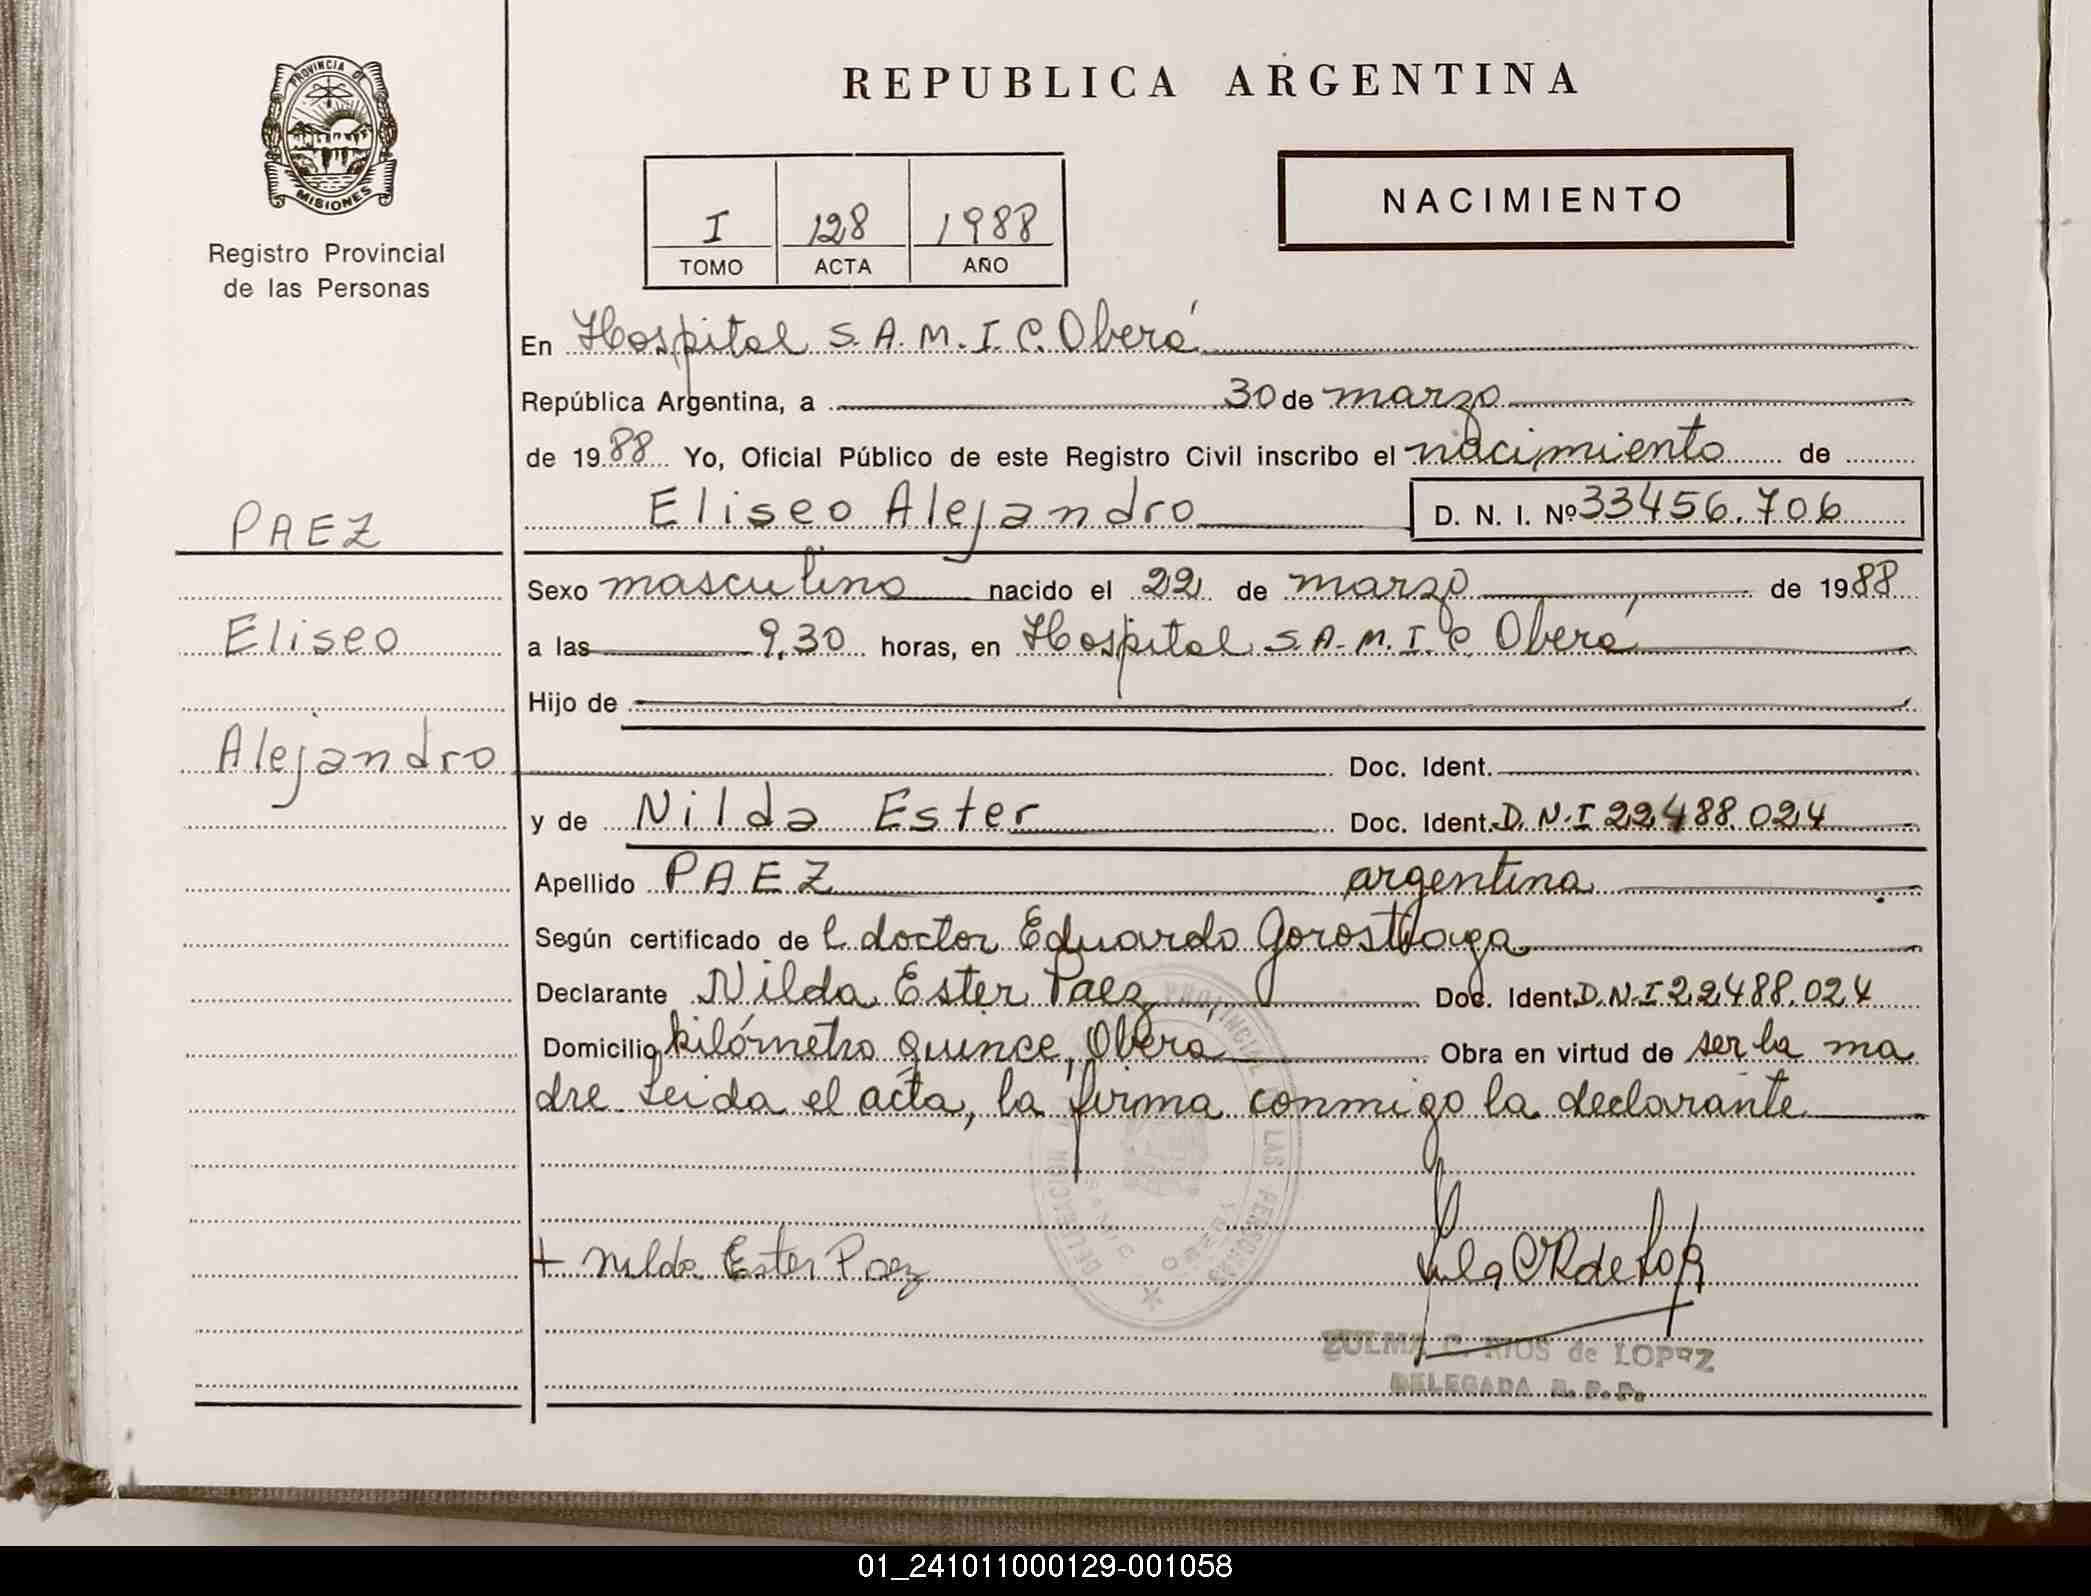 PROVINCIA DE
MISIONES
Registro Provincial
de las Personas
REPUBLICA ARGENTINA
NACIMIENTO
I 128 1988
TOMO ACTA AÑO
En Hospital S.A.M.I.C. Oberá
República Argentina, a 30 de marzo
de 1988 Yo, Oficial Público de este Registro Civil inscribo el nacimiento de
Eliseo Alejandro D. N. I. Nº 33456.706
PAEZ
Sexo masculino nacido el 22 de marzo de 1988
Eliseo
a las 9,30 horas, en Hospital S.A.M.I.C. Oberá
Hijo de
Alejandro
Doc. Ident.
y de Nilda Ester Doc. Ident. D.N.I 22488.024
Apellido PAEZ argentina
Según certificado de l doctor Eduardo Gorostiaga
Declarante Nilda Ester Paez, Doc. Ident. D.N.I 22488.024
Domicilio kilómetro quince, Obera Obra en virtud de ser la ma
dre Leida el acta, la firma conmigo la declarante
PROVINCIAL DE LAS PERSONAS
+ Nilda Ester Paez
ZULMA C. RIOS de LOPEZ
DELEGADA R. P. P.
01_241011000129-001058